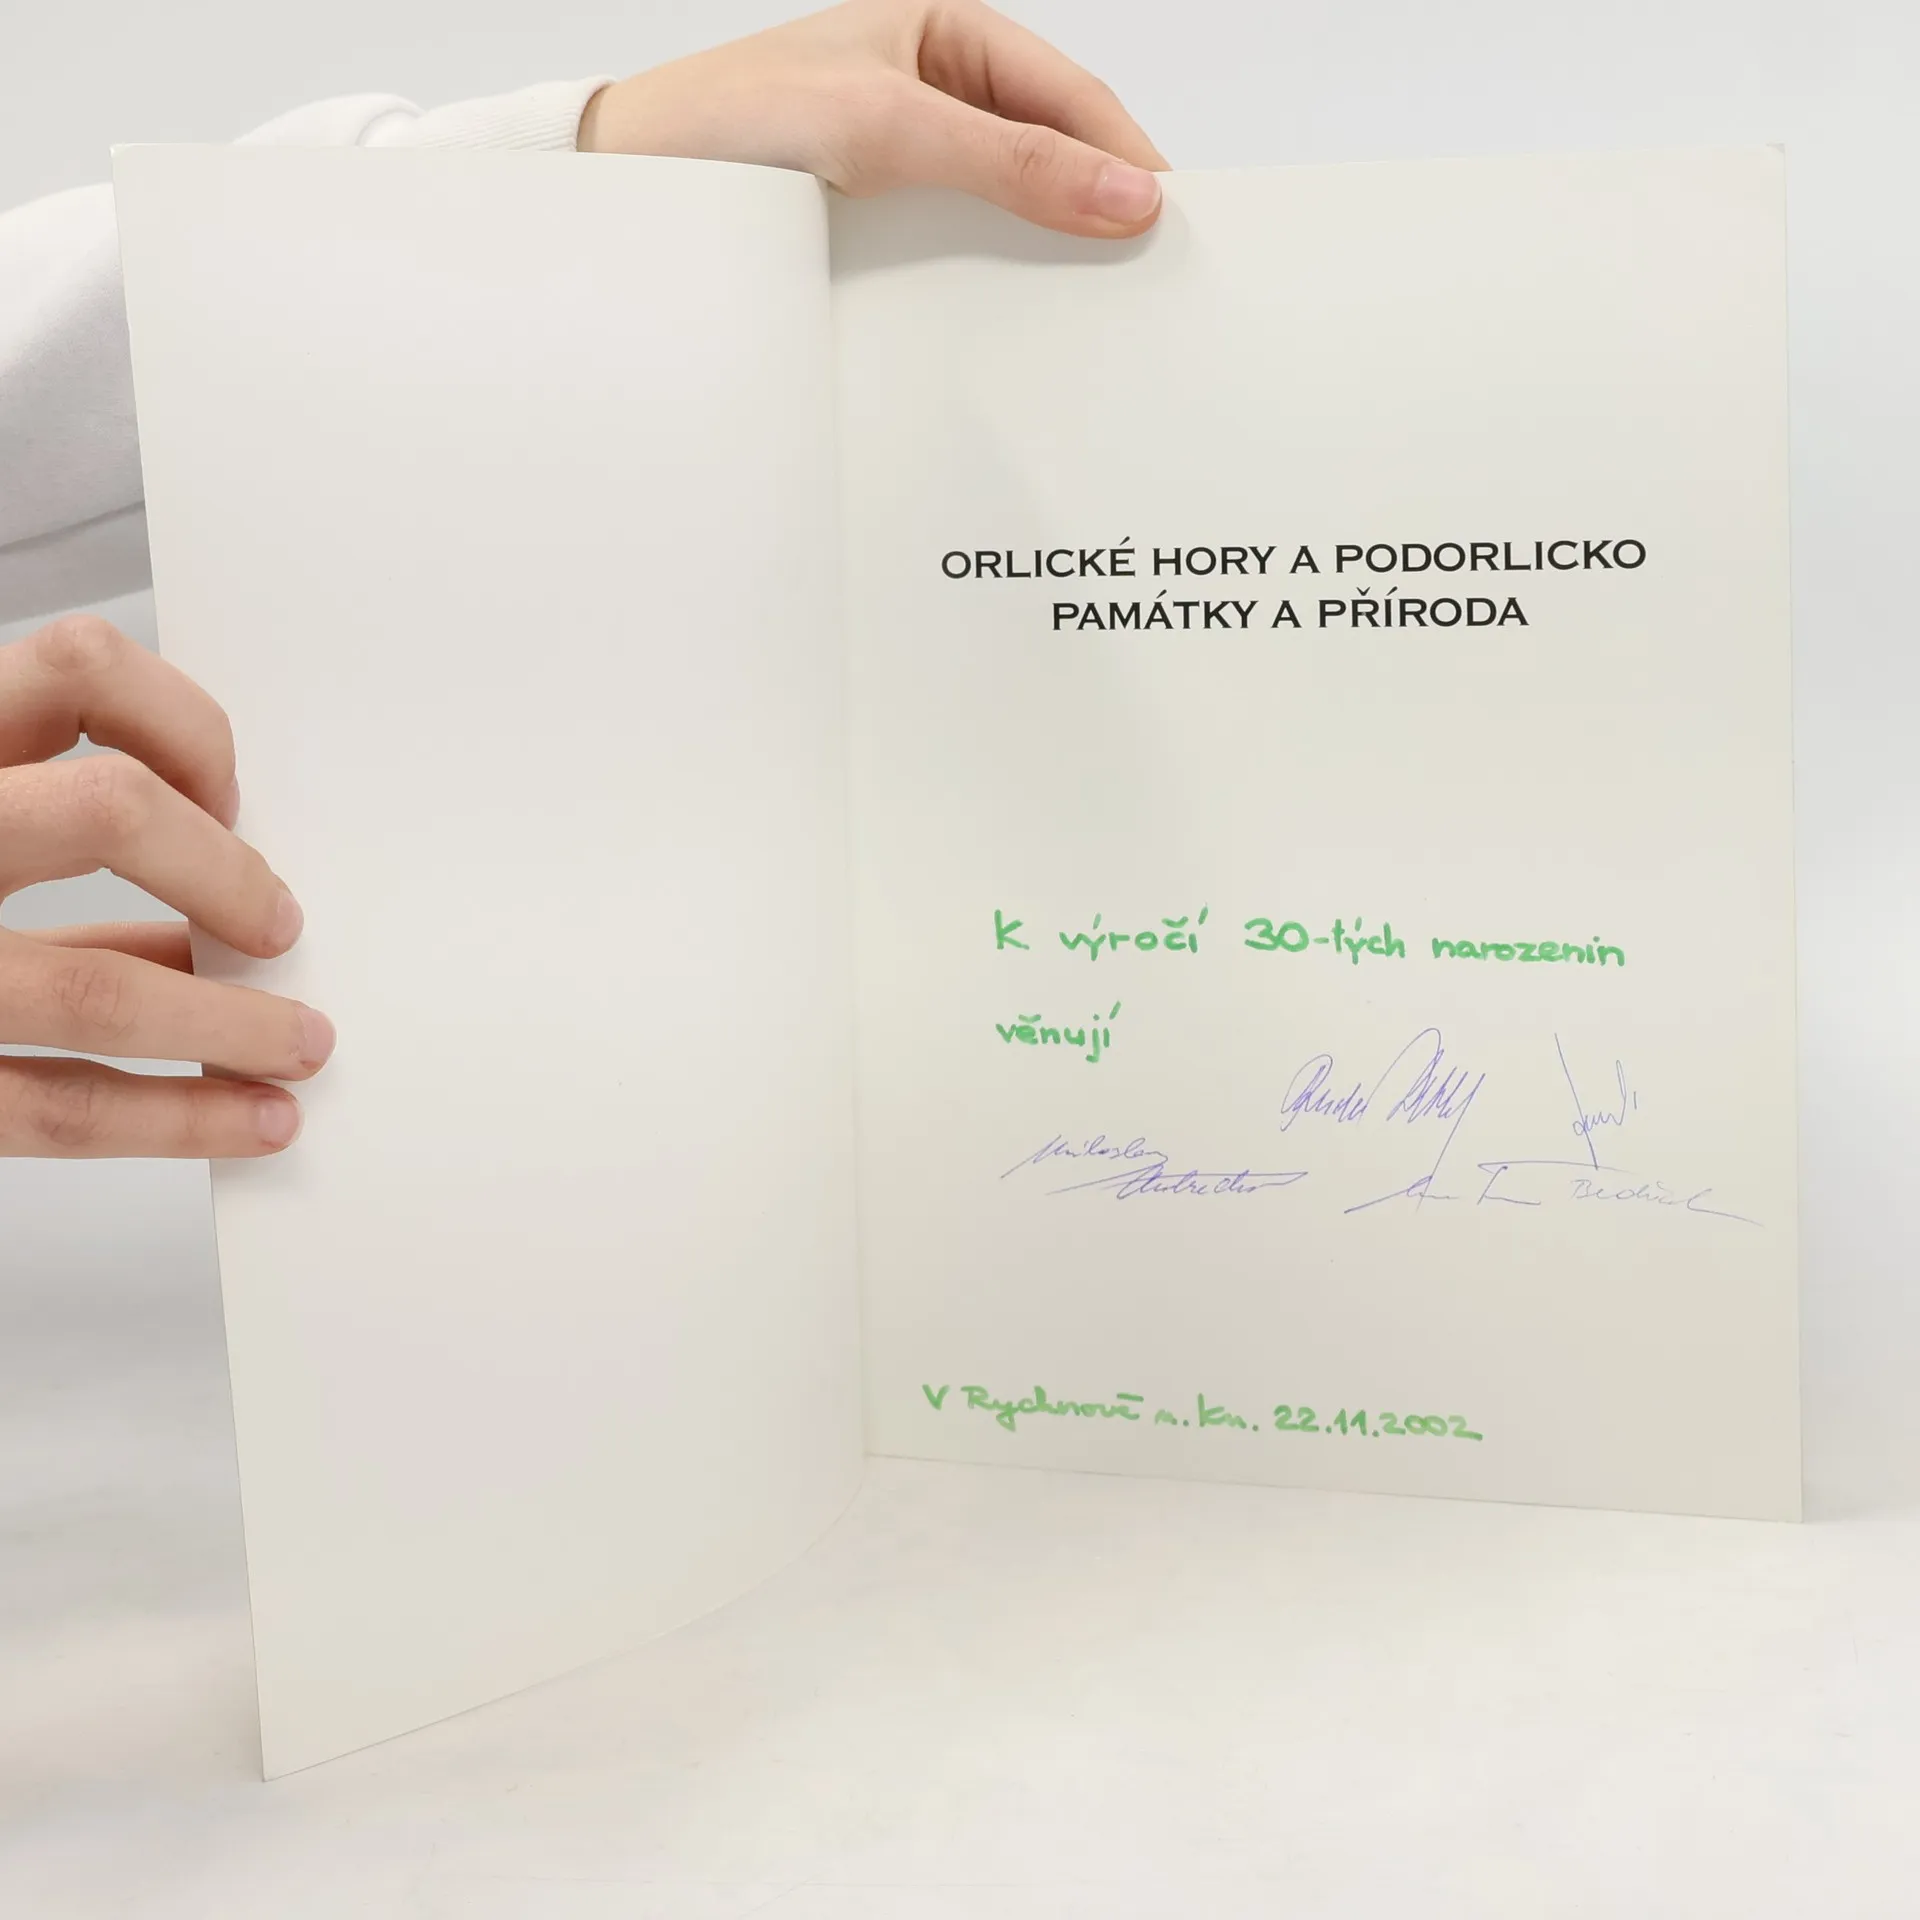 ORLICKÉ HORY A PODORLICKO
PAMÁTKY A PŘÍRODA
K výročí 30-tých narozenin
věnují
Miloslav
Bedřich
V Rychnově n. Kn. 22.11.2002